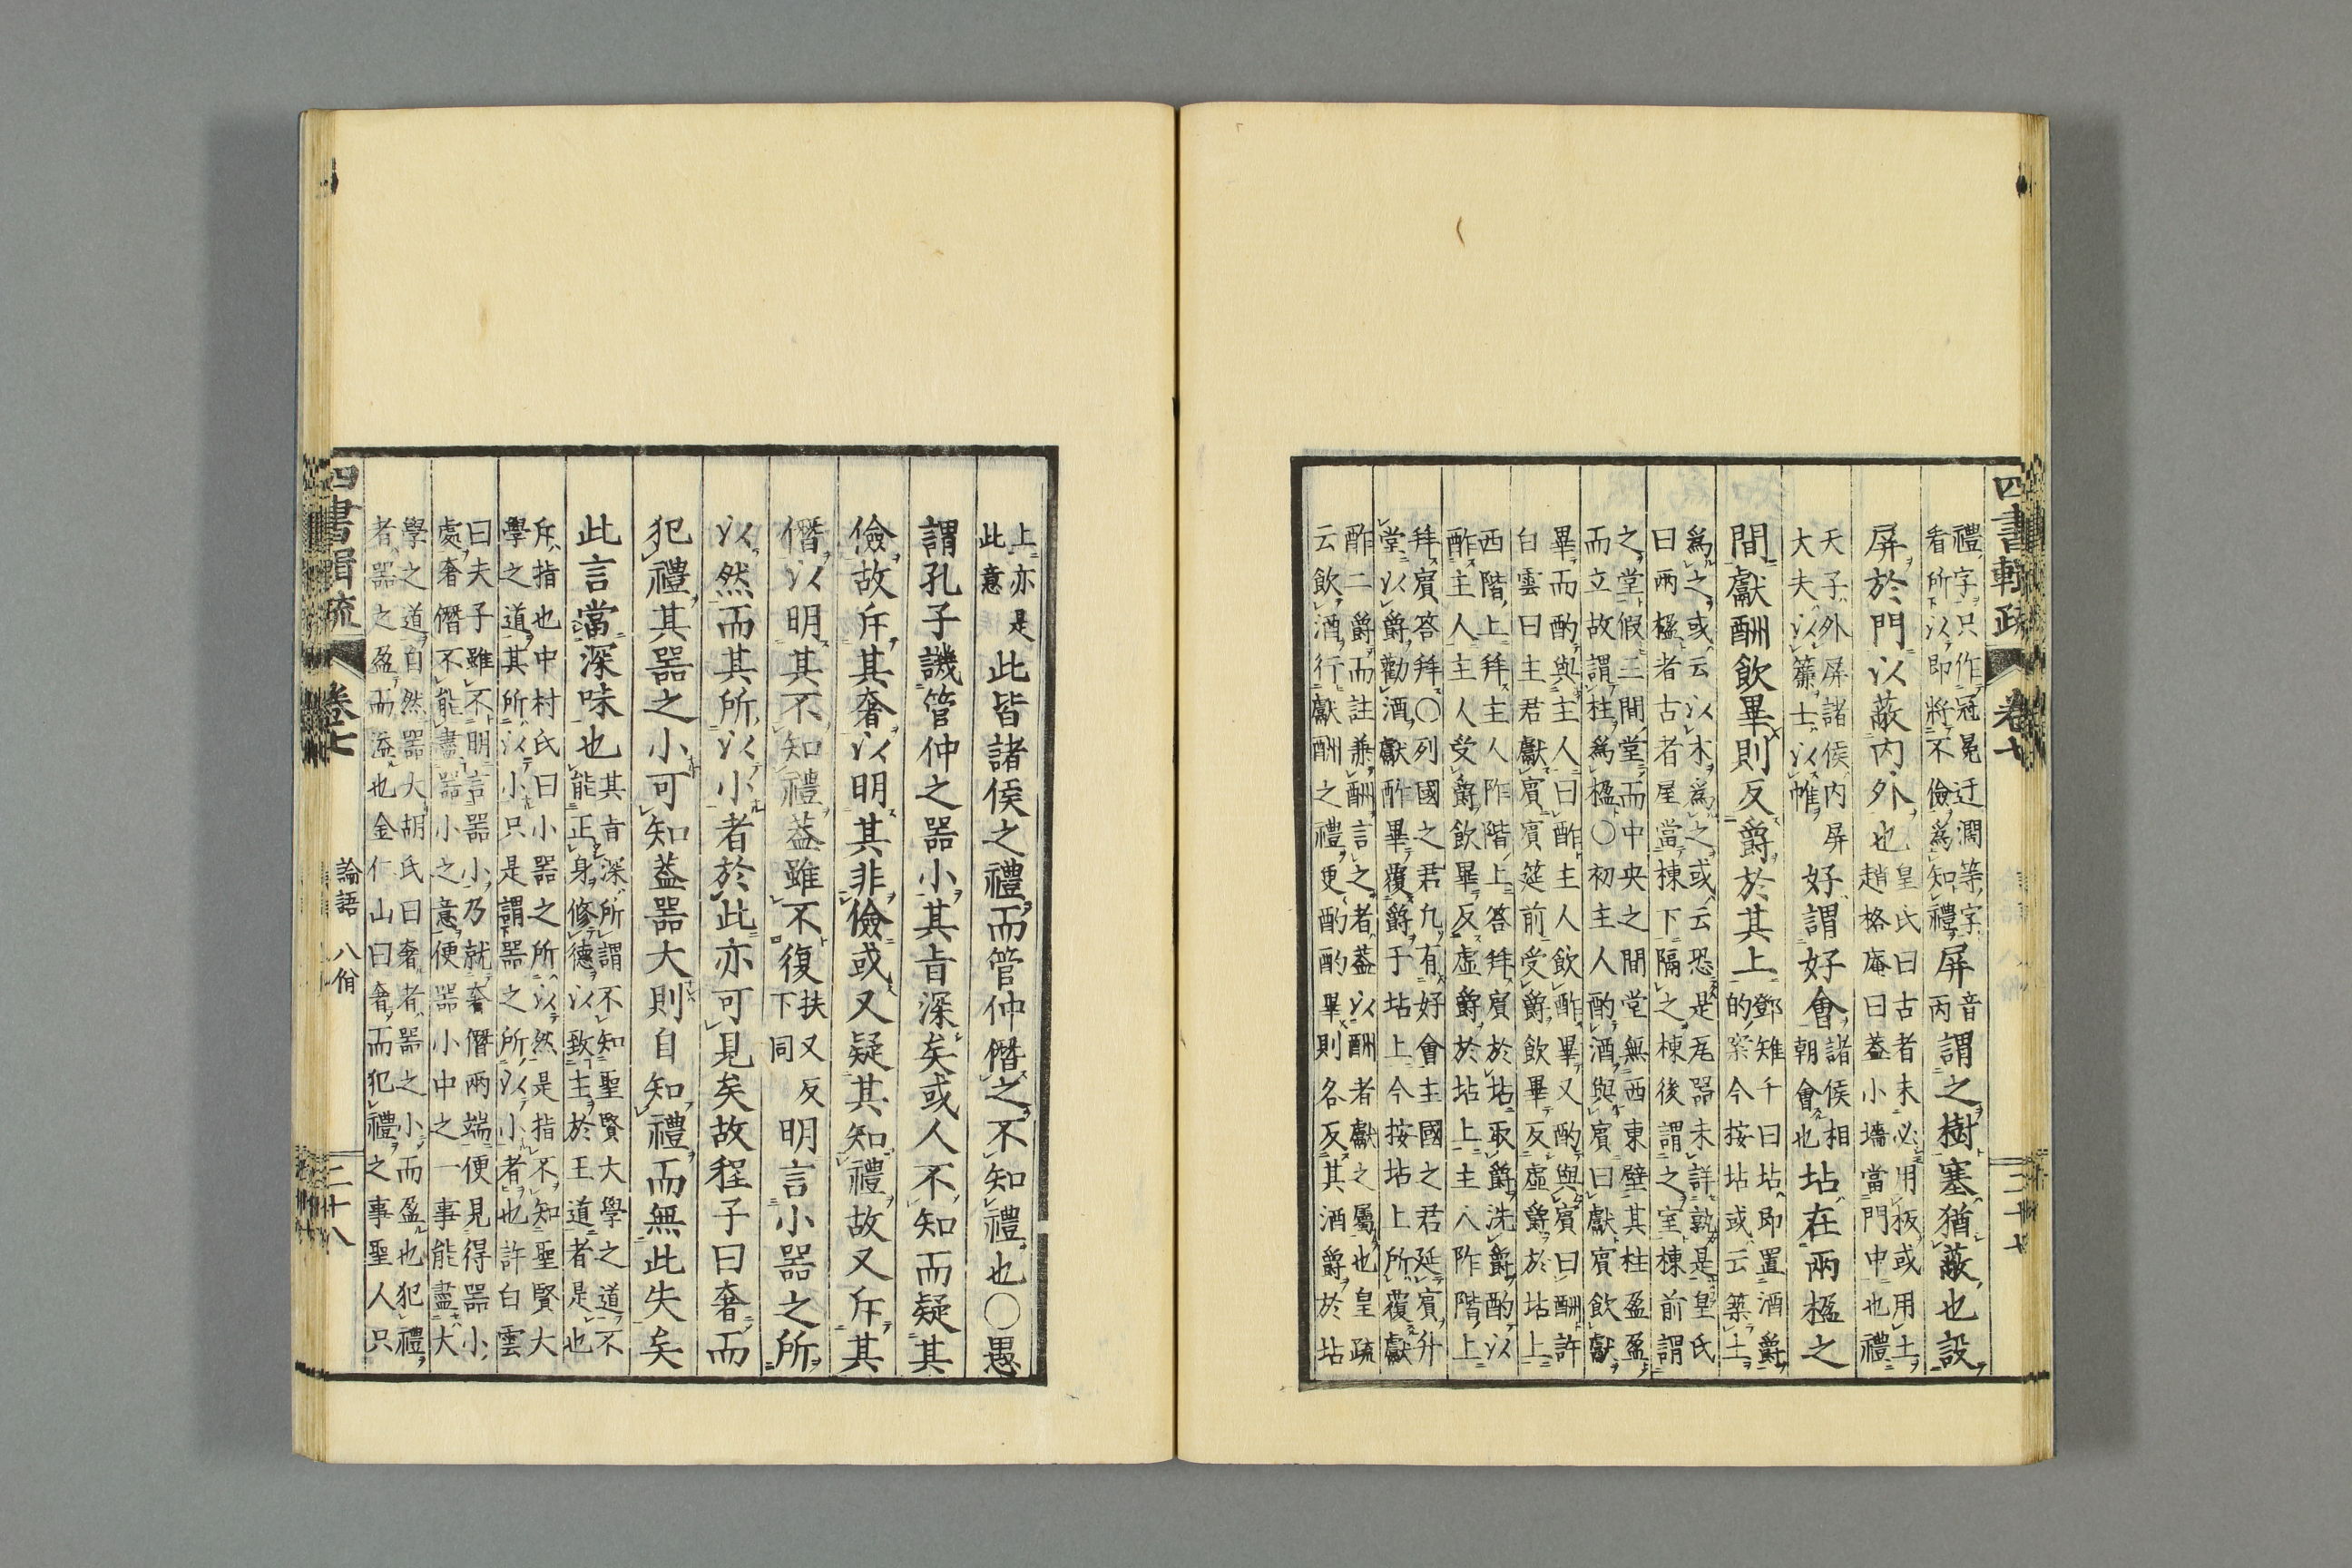 四書輯疏
卷七
二十七
禮字只作冠冕迂濶等字
看所以即將不儉爲知禮
屏
音
丙
謂之樹塞猶蔽也設
屏於門以蔽內外也
皇氏曰古者未必用板或用土
趙格庵曰蓋小墻當門中也禮
天子外屏諸侯內屏
大夫以簾士以帷
好謂好會
諸侯相
朝會也
坫在兩楹之
間獻酬飲畢則反爵於其上
鄧雉千曰坫即置酒爵
的案今按坫或云築土
爲之或云以木爲之或云恐是瓦噐未詳孰是皇氏
曰兩楹者古者屋當棟下隔之棟後謂之室棟前謂
之堂假三間堂而中央之間堂無西東壁其柱盈盈
而立故謂柱爲楹○初主人酌酒與賓曰獻賓飲獻
畢而酌與主人曰酢主人飲酢畢又酌與賓曰酬許
白雲曰主君獻賓賓筵前受爵飲畢反虛爵於坫上
西階上拜主人阼階上答拜賓於坫取爵洗爵酌以
酢主人主人受爵飲畢反虛爵於坫上主人阼階上
拜賓答拜○列國之君凡有好會主國之君延賓升
堂以爵勸酒獻酢畢覆爵于坫上今按坫上所覆獻
酢二爵而註兼酬言之者蓋以酬者獻之屬也皇疏
云飲酒行獻酬之禮更酌酌畢則各反其酒爵於坫
上亦是
此意
此皆諸侯之禮而管仲僭之不知禮也○愚
謂孔子譏管仲之噐小其旨深矣或人不知而疑其
儉故斥其奢以明其非儉或又疑其知禮故又斥其
僭以明其不知禮蓋雖不復
扶又反
下同
明言小噐之所
以然而其所以小者於此亦可見矣故程子曰奢而
犯禮其噐之小可知蓋噐大則自知禮而無此失矣
此言當深味也
其旨深所謂不知聖賢大學之道不
能正身修德以致主於王道者是也
斥指也中村氏曰小器之所以然是指不知聖賢大
學之道其所以小只是謂噐之所以小者也許白雲
曰夫子雖不明言噐小乃就奢僭兩端便見得噐小
處奢僭不能盡噐小之意便噐小中之一事能盡大
學之道自然噐大胡氏曰奢者噐之小而盈也犯禮
者噐之盈而溢也金仁山曰奢而犯禮之事聖人只
四書輯疏
卷七
論語　八佾
二十八